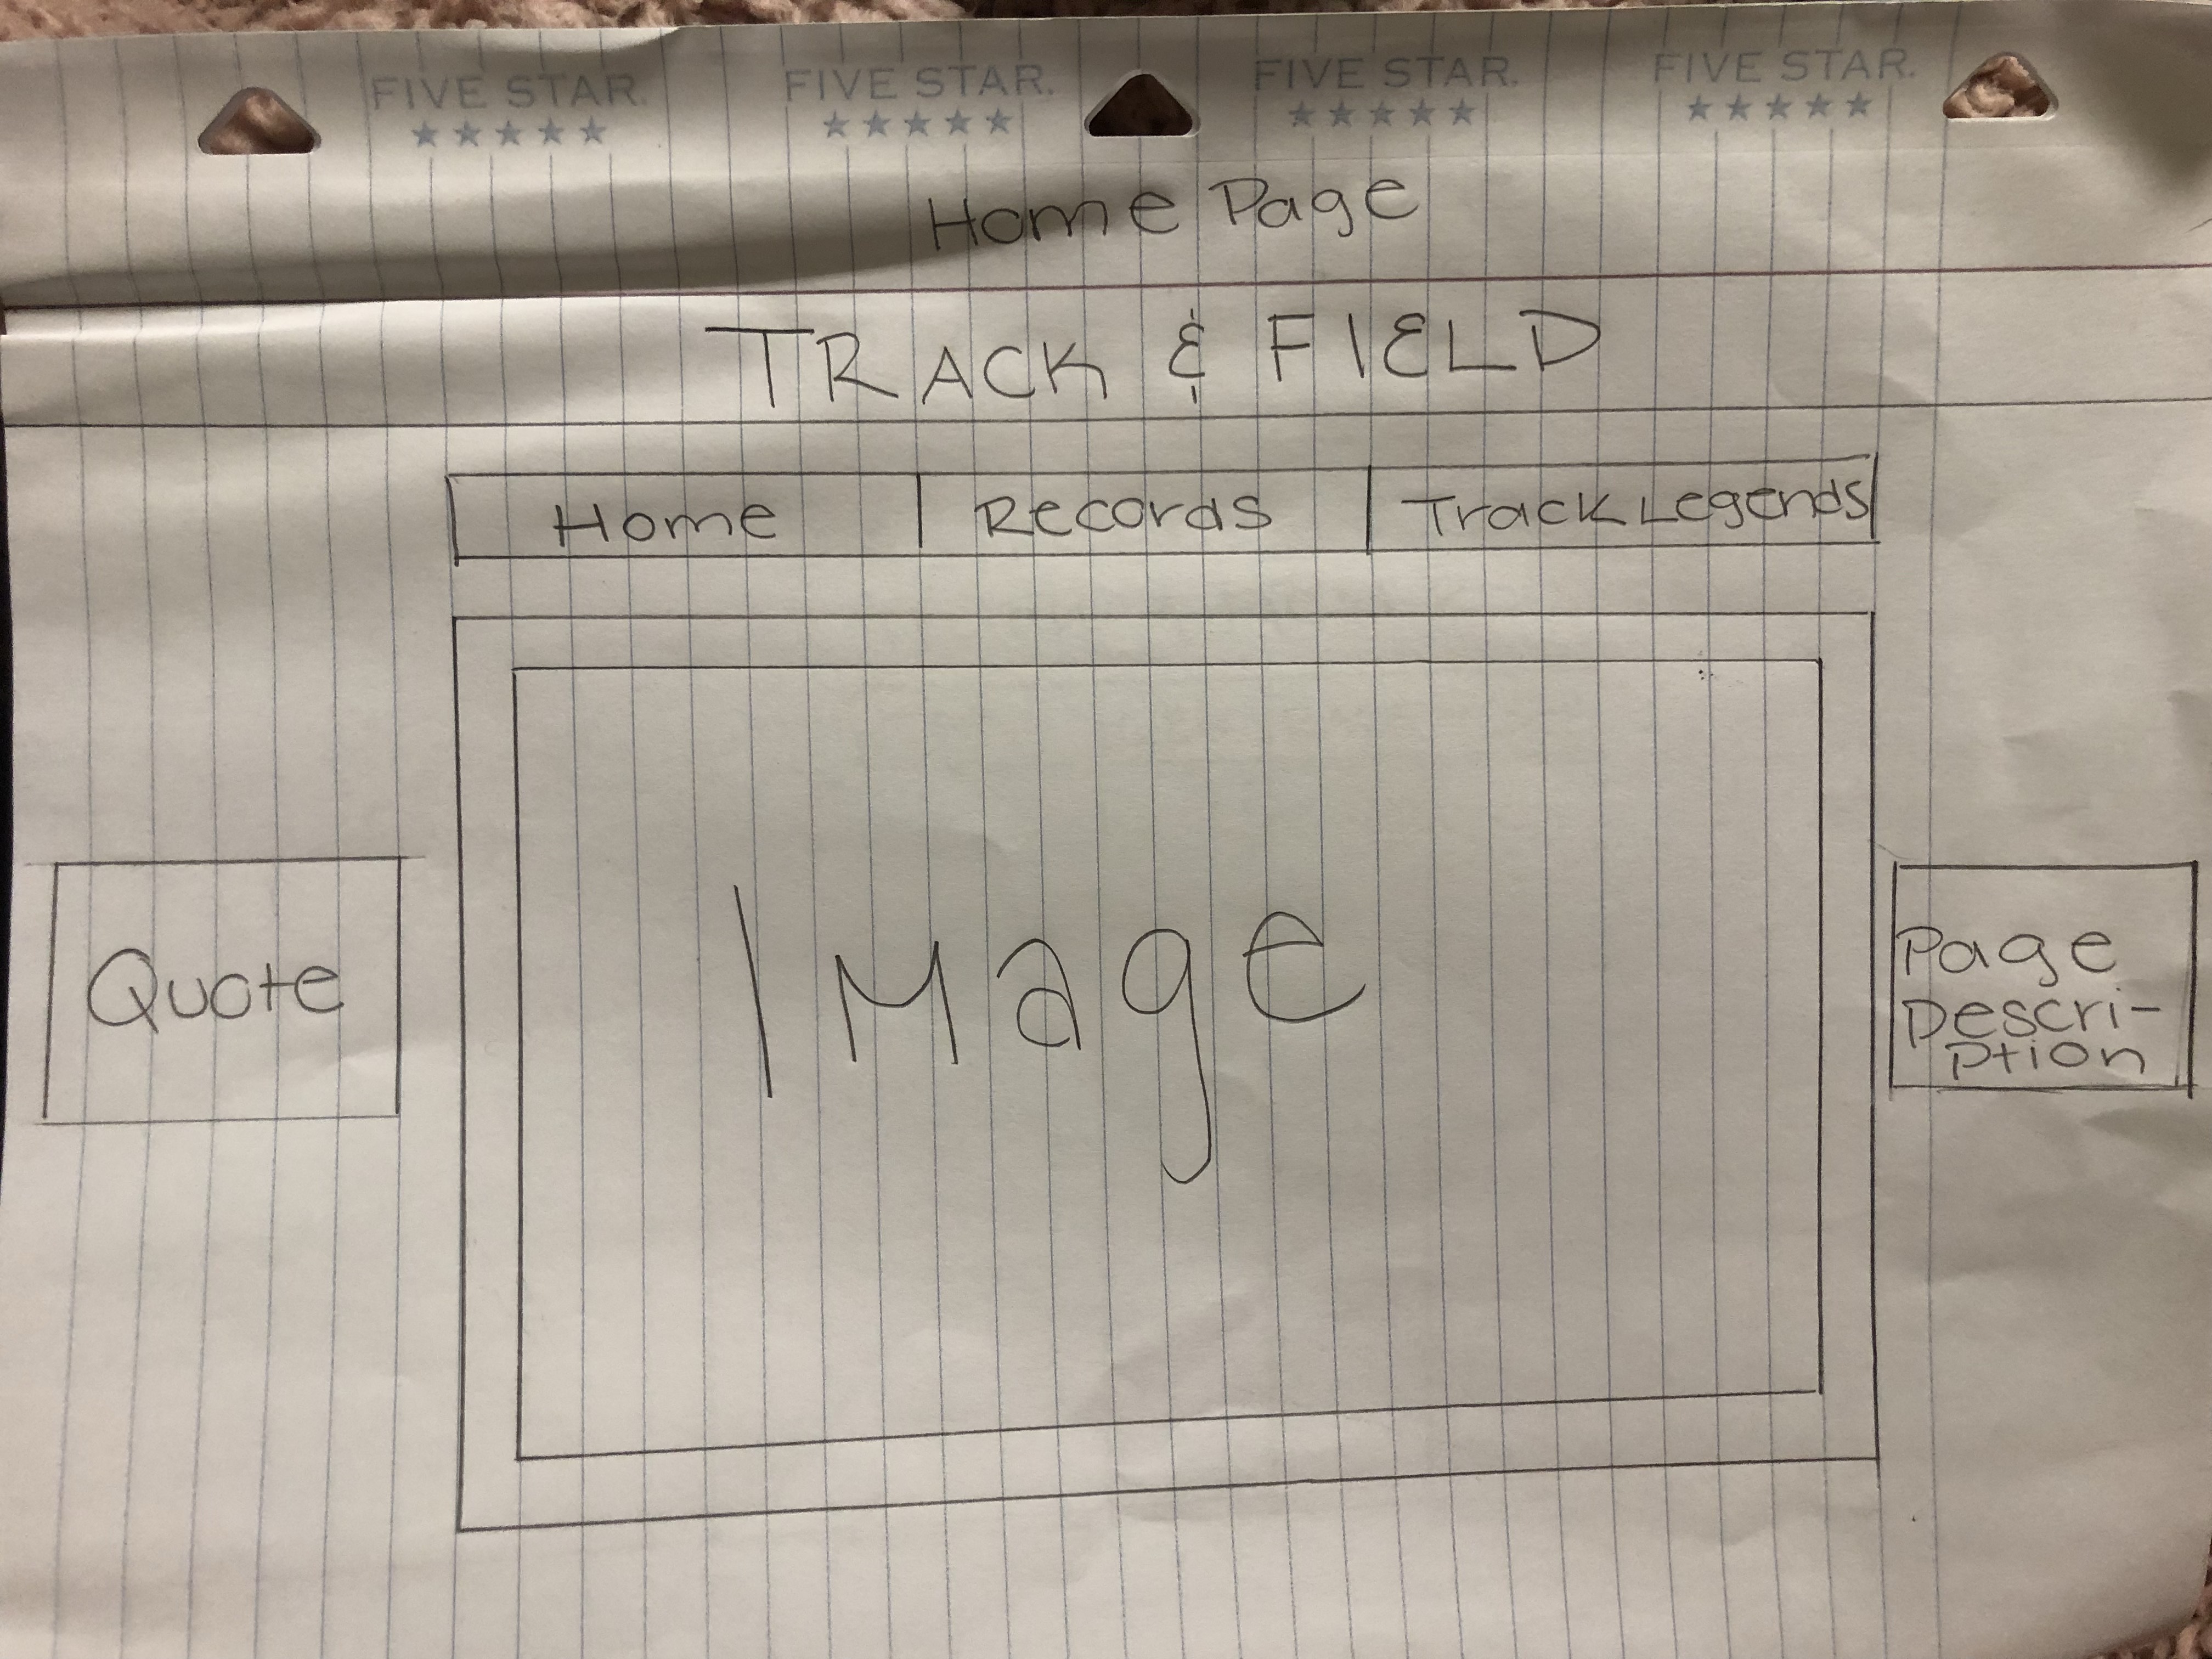 FIVE STAR. FIVE STAR. FIVE STAR. FIVE STAR.
★★★★★ ★★★★★ ★★★★★ ★★★★★
Home Page
TRACK & FIELD
Home Records Track Legends
Quote
Image
Page
Descri-
ption